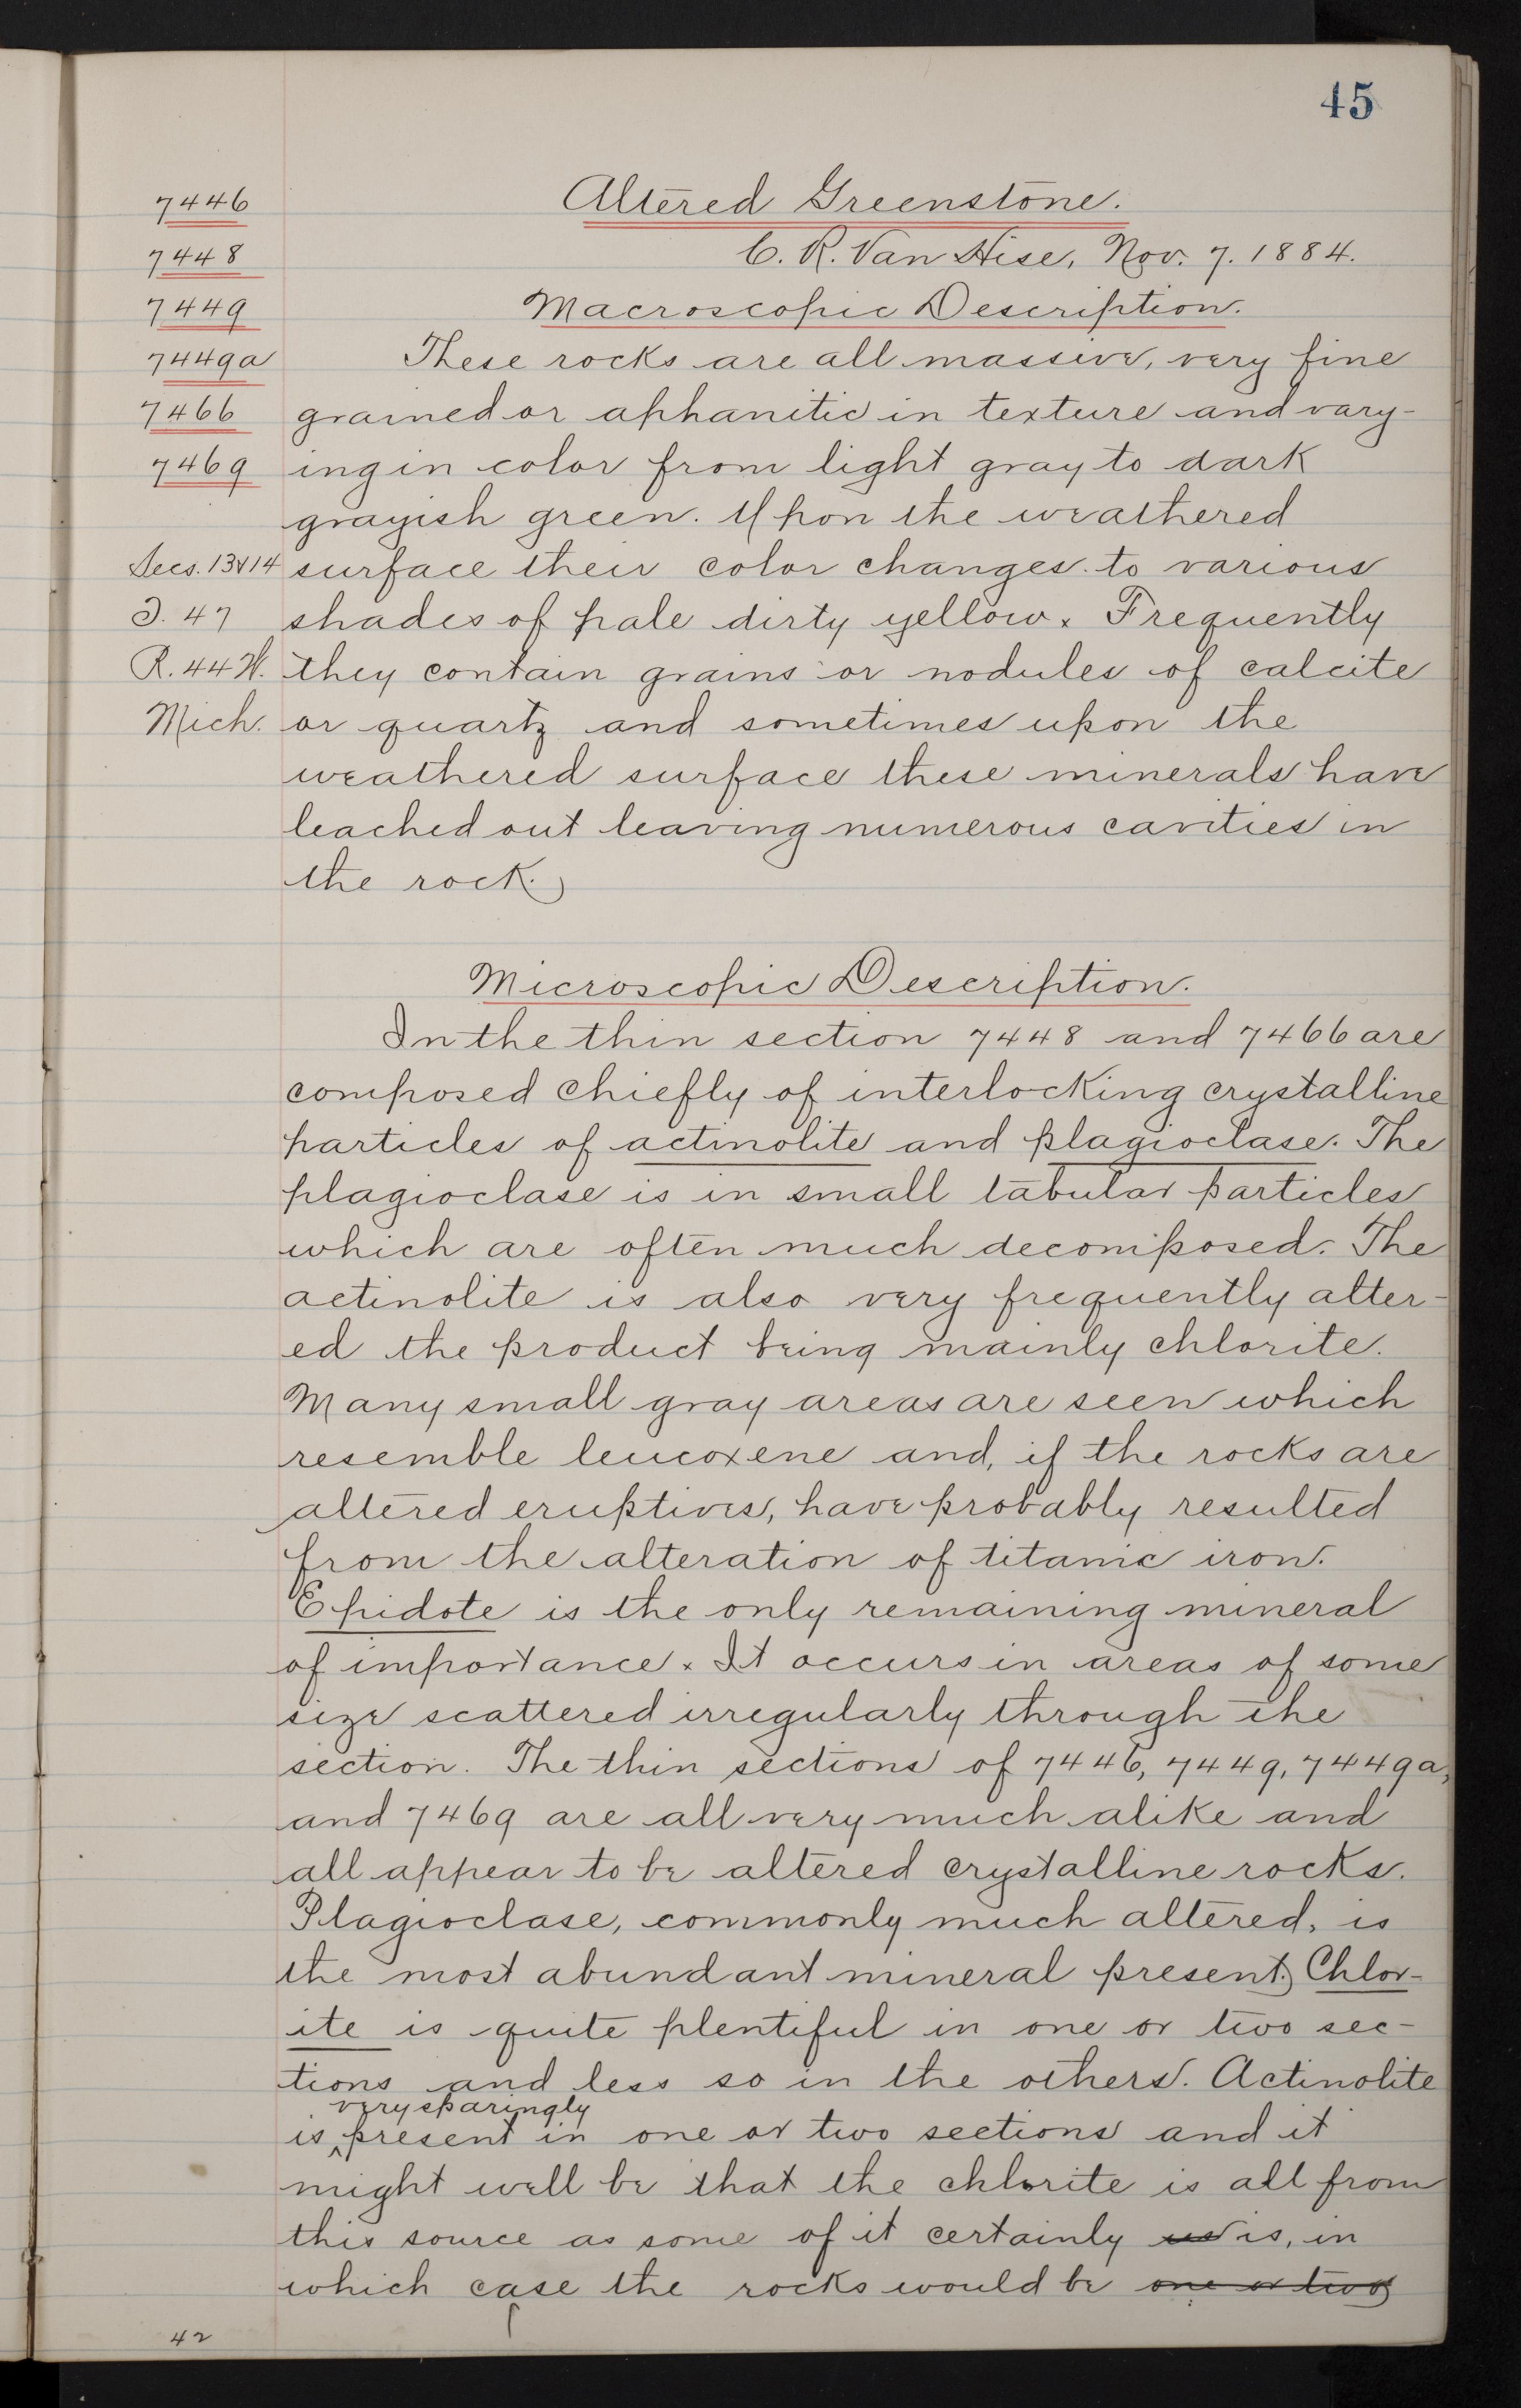 45
7446
Altered Greenstone.
7448
C. R. Van Hise, Nov. 7. 1884.
7449
Macroscopic Description.
7449a
These rocks are all massive, very fine
7466
grained or aphanitic in texture and vary-
7469
ing in color from light gray to dark
grayish green. Upon the weathered
Secs. 13&14
surface their color changes to various
T. 47
shades of pale dirty yellow. Frequently
R. 44 W.
they contain grains or nodules of calcite
Mich.
or quartz and sometimes upon the
weathered surface these minerals have
leached out leaving numerous cavities in
the rock.
Microscopic Description.
In the thin section 7448 and 7466 are
composed chiefly of interlocking crystalline
particles of actinolite and plagioclase. The
plagioclase is in small tabular particles
which are often much decomposed. The
actinolite is also very frequently alter-
ed the product being mainly chlorite.
Many small gray areas are seen which
resemble leucoxene and, if the rocks are
altered eruptives, have probably resulted
from the alteration of titanic iron.
Epidote is the only remaining mineral
of importance. It occurs in areas of some
size scattered irregularly through the
section. The thin sections of 7446, 7449, 7449a,
and 7469 are all very much alike and
all appear to be altered crystalline rocks.
Plagioclase, commonly much altered, is
the most abundant mineral present. Chlor-
ite is quite plentiful in one or two sec-
tions and less so in the others. Actinolite
very sparingly
is present in one or two sections and it
might well be that the chlorite is all from
this source as some of it certainly is, in
which case the rocks would be one or two
42